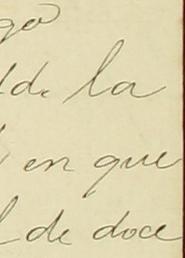 go
de la
en que
l de doce